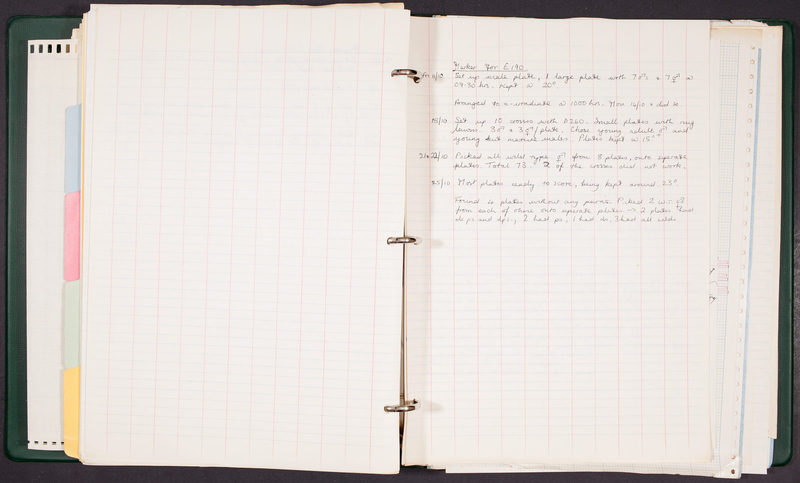 Marker for E190
Fri 11/10 Set up male plate, 1 large plate with 7 ♂s + 7 ⚥ @
09.30 hrs. Kept @ 20°
Arranged to x-irradiate @ 1000 hrs. Mon 14/10 + did so.
15/10 Set up 10 crosses with Small plates with
lawns. 3♂ + 3⚥/plate. Chose young adult and
young but mature males. Plates kept @ 15°
21+22/10 Picked all wild type from 8 plates, onto separate
plates. Total 73. 2 of the crosses did not work.
25/10 Most plates ready to score, being kept around 23°.
Found 6 plates without any Picked 2
from each of these onto separate plates → 2 plates had
2 had 1 had 3 had all wilds